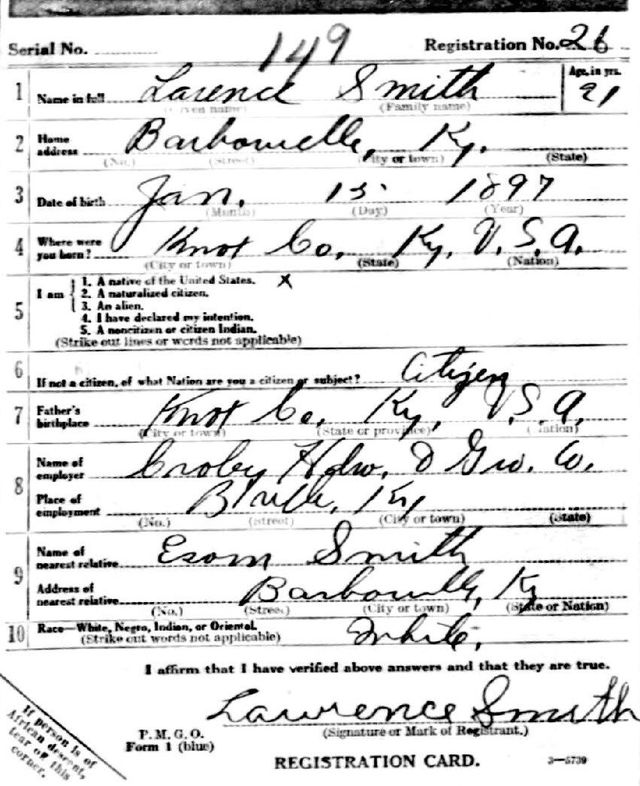 Serial No. 149 Registration No. 26
1 Name in full Larence Smith Age, in yrs. 21
(Given name) (Family name)
2 Home address Barbourville, Ky.
(No.) (Street) (City or town) (State)
3 Date of birth Jan. 15 1897
(Month) (Day) (Year)
4 Where were you born? Knox Co. Ky. U.S.A.
(City or town) (State) (Nation)
5 I am
1. A native of the United States. X
2. A naturalized citizen.
3. An alien.
4. I have declared my intention.
5. A noncitizen or citizen Indian.
(Strike out lines or words not applicable)
6 If not a citizen, of what Nation are you a citizen or subject? Citizen
7 Father's birthplace Knox Co. Ky. U.S.A.
(City or town) (State or province) (Nation)
8 Name of employer Croby Hdw. & Gro. Co.
Place of employment B'ville, Ky
(No.) (Street) (City or town) (State)
9 Name of nearest relative Esom Smith
Address of nearest relative Barbourville, Ky
(No.) (Street) (City or town) (State or Nation)
10 Race—White, Negro, Indian, or Oriental. White.
(Strike out words not applicable)
I affirm that I have verified above answers and that they are true.
Lawrence Smith
(Signature or Mark of Registrant.)
P. M. G. O.
Form 1 (blue)
REGISTRATION CARD. 3—5739
If person is of
African descent,
tear off this
corner.